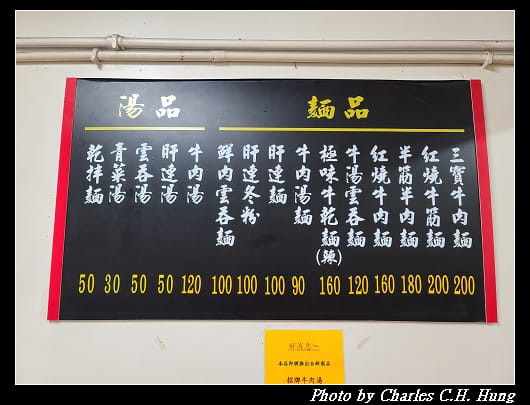 麵品
三寶牛肉麵 200
紅燒牛筋麵 200
半筋半肉麵 180
紅燒牛肉麵 160
牛湯雲吞麵 120
極味牛乾麵(辣) 160
牛肉湯麵 90
肝連麵 100
肝連冬粉 100
鮮肉雲吞麵 100
湯品
牛肉湯 120
肝連湯 50
雲吞湯 50
青菜湯 30
乾拌麵 50
好消息~
本店即將推出全新商品
招牌牛肉湯
Photo by Charles C.H. Hung